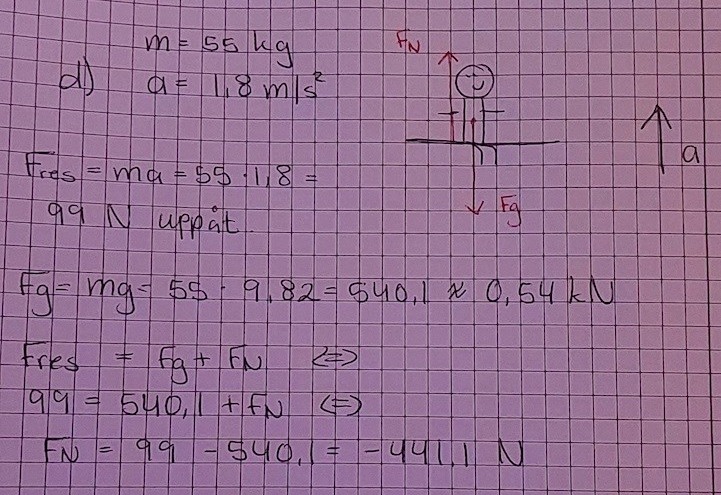 m = 55 kg
d) a = 1,8 m/s²
FN
a
Fg
Fres = ma = 55 · 1,8 =
99 N uppåt
Fg = mg = 55 · 9,82 = 540,1 ≈ 0,54 kN
Fres = Fg + FN <=>
99 = 540,1 + FN <=>
FN = 99 - 540,1 = -441,1 N